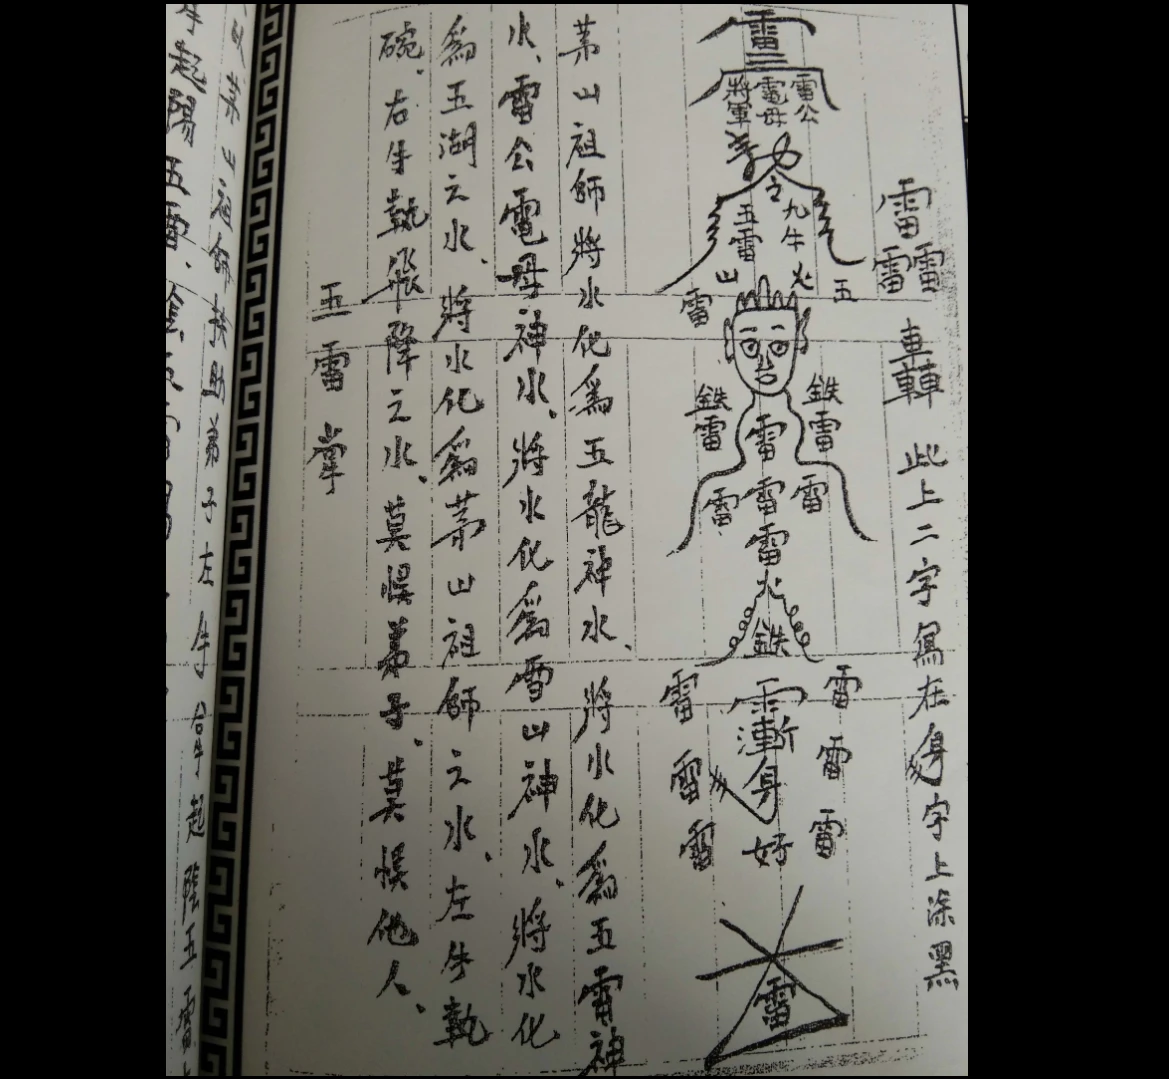 雷
雷雷
轟 此上二字寫在身字上塗黑
雷
雷公
電母
將軍
令
九牛
五雷
火
山
五
雷
鉄雷
鉄雷
雷
雷雷雷
雷
火
鉄
雷
雷
雷
漸
身
好
雷
雷
雷
雷
茅山祖師將水化為五龍神水、將水化為五雷神
水、雷公電母神水、將水化為雪山神水、將水化
為五湖之水、將水化為茅山祖師之水、左手執
碗、右手執飛降之水、莫悮弟子、莫悮他人、
五雷掌
茅山祖師扶助弟子左手
起陽五雷、